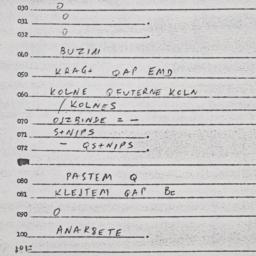 030 0
031 0
032 0
040 BUZIM
050 KRAG+ QAP EMD
060 KOLNE QFUTERNE KOLN
/ KOLNES
070 OJZBINDE = -
071 S+NIPS
072 - QS+NIPS
080 PASTEM Q
081 KLEJTEM GAP BE
090 0
200 ANARBETE